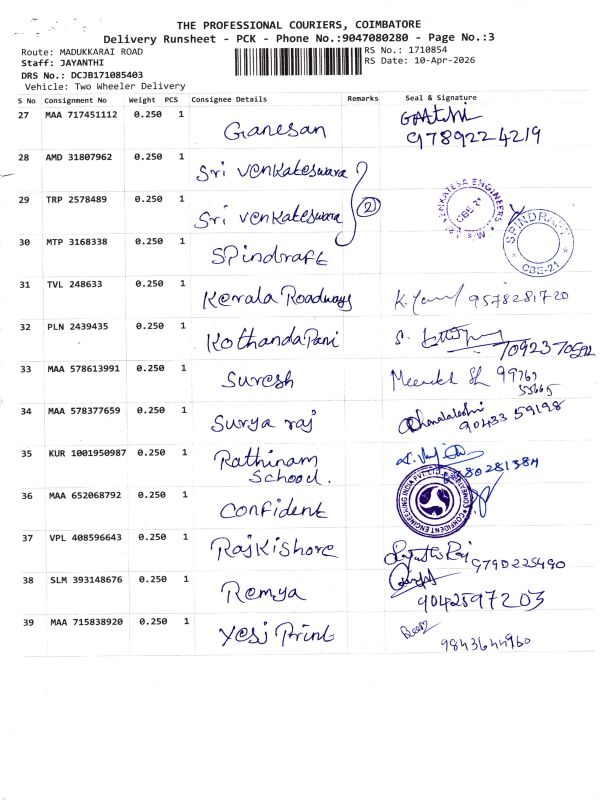 THE PROFESSIONAL COURIERS, COIMBATORE
Delivery Runsheet - PCK - Phone No.:9047080280 - Page No.:3
Route: MADUKKARAI ROAD
RS No.: 1710854
Staff: JAYANTHI
RS Date: 10-Apr-2026
DRS No.: DCJB171085403
Vehicle: Two Wheeler Delivery
S No Consignment No Weight PCS Consignee Details Remarks Seal & Signature
27 MAA 717451112 0.250 1 Ganesan
9789224219
28 AMD 31807962 0.250 1 Sri Venkateswara
29 TRP 2578489 0.250 1 Sri Venkateswara 2
VENKATESA ENGINEERS CBE-21
30 MTP 3168338 0.250 1 Spindraft
SPINDRAFT CBE-21
31 TVL 248633 0.250 1 Kerala Roadways 9578281720
32 PLN 2439435 0.250 1 Kothanda Pani
33 MAA 578613991 0.250 1 Suresh 99767
55665
34 MAA 578377659 0.250 1 Surya raj
90433 59198
35 KUR 1001950987 0.250 1 Rathinam
School.
36 MAA 652068792 0.250 1 Confident
CONFIDENT ENGINEERING INDIA PVT. LTD.
37 VPL 408596643 0.250 1 Rajkishore 9790225490
38 SLM 393148676 0.250 1 Remya
9042597203
39 MAA 715838920 0.250 1 Yesj Print
9843644960